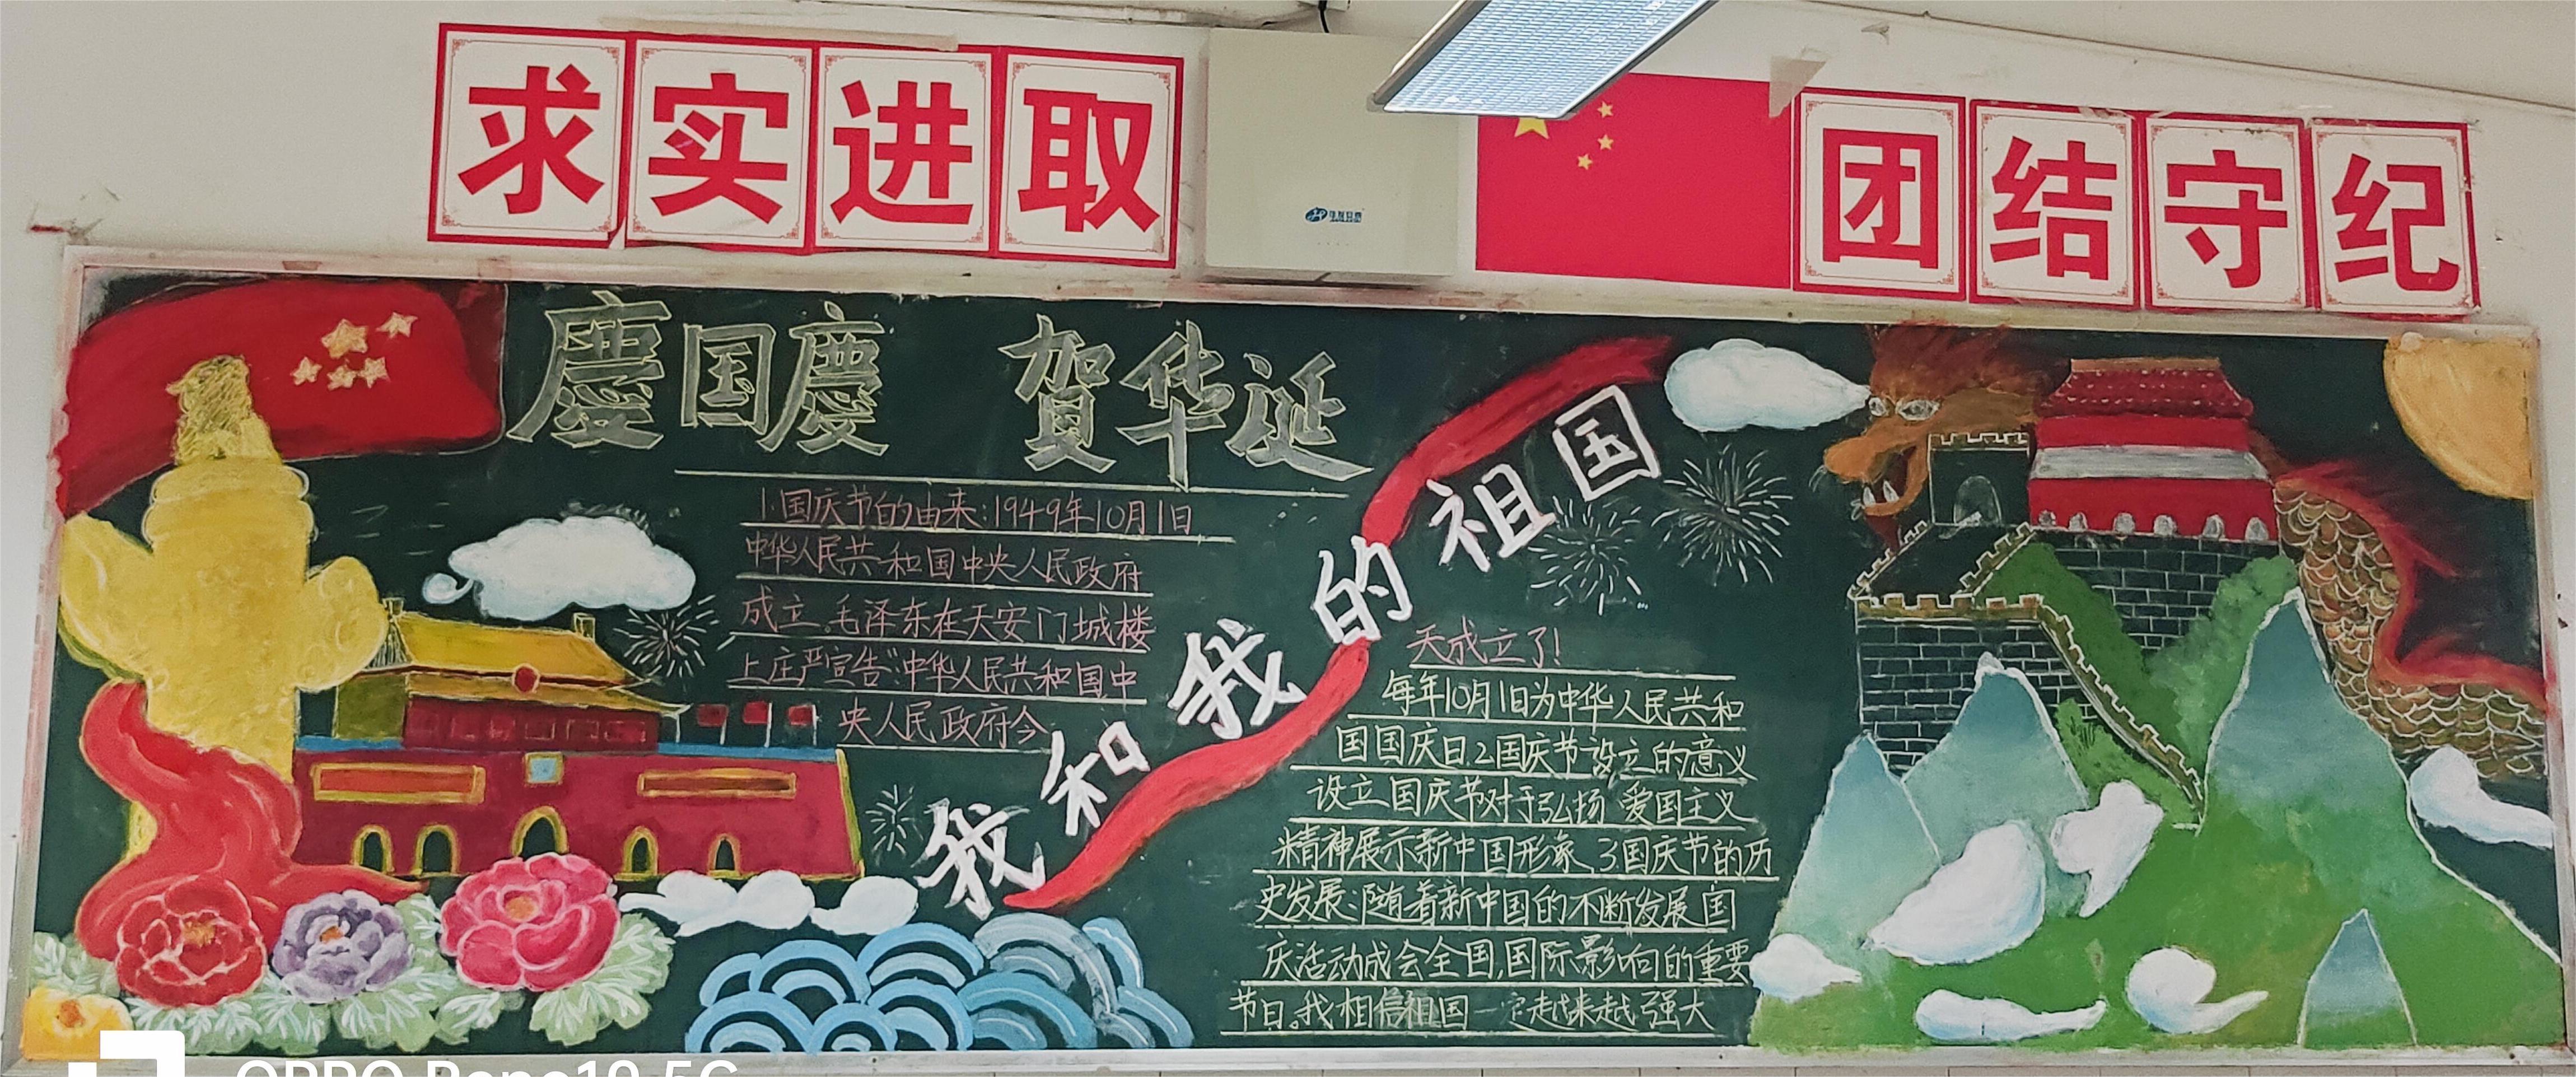 求实进取
团结守纪
慶国慶 賀华诞
1.国庆节的由来:1949年10月1日
中华人民共和国中央人民政府
成立.毛泽东在天安门城楼
上庄严宣告:"中华人民共和国中
央人民政府今
我和我的祖国
天成立了!
每年10月1日为中华人民共和
国国庆日.2国庆节设立的意义
设立国庆节对于弘扬 爱国主义
精神展示新中国形象、3国庆节的历
史发展:随着新中国的不断发展国
庆活动成会全国,国际影响的重要
节日。我相信祖国一定越来越强大